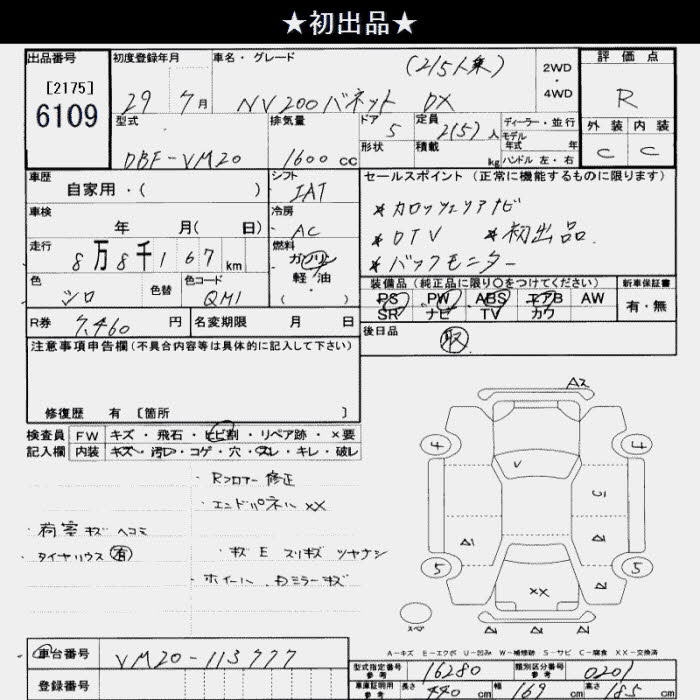 ★初出品★
出品番号
[2175]
6109
初度登録年月
29 7月
車名・グレード
NV200バネット DX
(2/5人乗)
2WD
・
4WD
評価点
R
外装 内装
C C
型式
DBF-VM20
排気量
1600cc
ドア
5
形状
定員
2(5)人
積載
kg
ディーラー・並行
モデル
年式 年
ハンドル 左・右
車歴
自家用・( )
シフト
IAT
車検
年 月( 日)
冷房
AC
走行
8万8千167km
燃料
ガソリン
軽・油
( )
色
シロ
色替
色コード
QM1
R券
7,460円
名変期限 月 日
セールスポイント(正常に機能するものに限ります)
*カロッツェリアナビ
*DTV *初出品.
*バックモニター
装備品(純正品に限り○をつけてください)
PS PW ABS エアB AW
SR ナビ TV カワ
新車保証書
有・無
後日品
取
注意事項申告欄(不具合内容等は具体的に記入して下さい)
修復歴 有 [箇所 ]
検査員
記入欄
FW キズ・飛石・ヒビ割・リペア跡・×要
内装 キズ・汚レ・コゲ・穴・スレ・キレ・破レ
・Rフロアー 修正
・エンドパネル XX
・荷室 キズ ヘコミ
・タイヤハウス 有
・キズ E スリキズ ツヤナシ
・ホイール .ドミラーキズ
A2
4 4
V
5 5
XX
スペア
A-キズ E-エクボ U-凹み W-補修跡 S-サビ C-腐食 XX-交換済
車台番号
VM20-113777
登録番号
型式指定番号
参考
16280
類別区分番号
参考
0201
車庫証明用
参考
長さ 440cm
幅 169cm
高さ 185cm